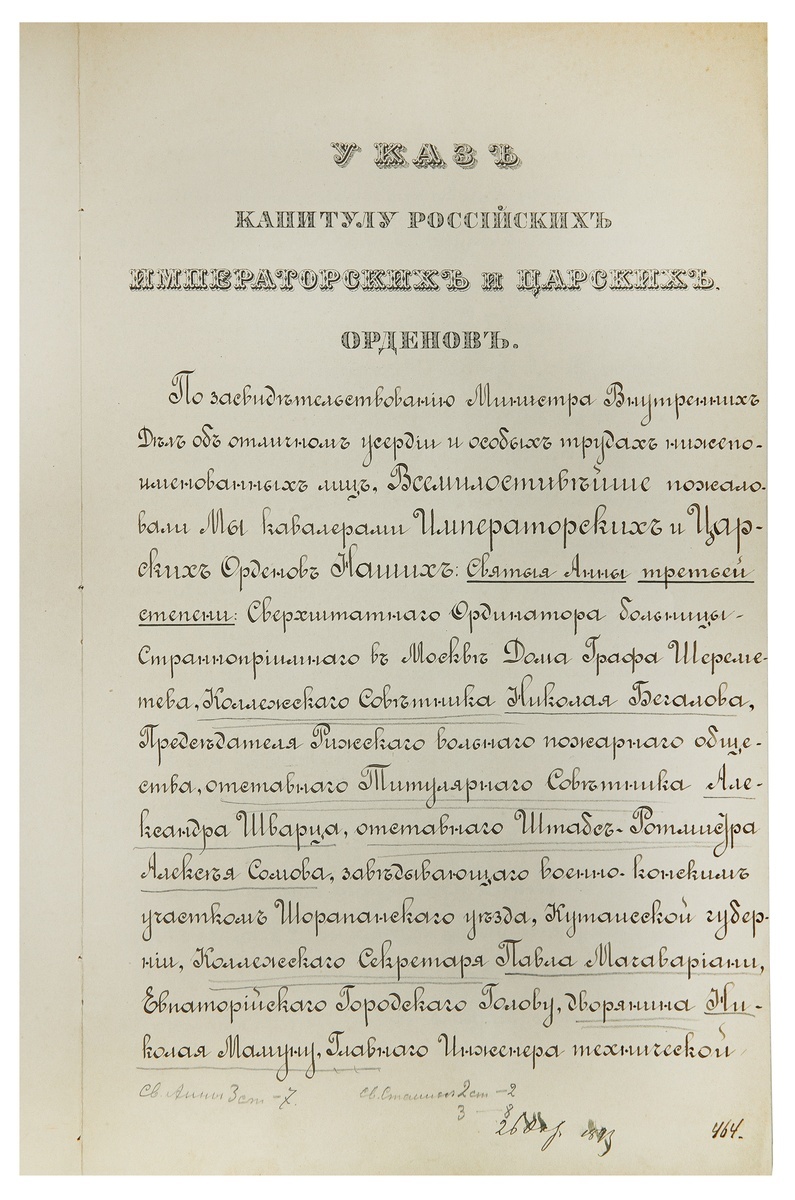 УКАЗЪ
КАПИТУЛУ РОССІЙСКИХЪ
ИМПЕРАТОРСКИХЪ и ЦАРСКИХЪ.
ОРДЕНОВЪ.
По засвидѣтельствованію Министра Внутреннихъ
Дѣлъ объ отличномъ усердіи и особыхъ трудахъ нижепо-
именованныхъ лицъ, Всемилостивѣйше пожало-
вали Мы кавалерами Императорскихъ и Цар-
скихъ Орденовъ Нашихъ: Святыя Анны третьей
степени: Сверхштатнаго Ординатора больницы-
Страннопріимнаго въ Москвѣ Дома Графа Шереме-
тева, Коллежскаго Совѣтника Николая Бегалова,
Предсѣдателя Рижскаго вольнаго пожарнаго обще-
ства, отставнаго Титулярнаго Совѣтника Але-
ксандра Шварца, отставнаго Штабсъ-Ротмистра
Алексѣя Сомова, завѣдывающаго военно-конскимъ
участкомъ Шорапанскаго уѣзда, Кутаисской губер-
ніи, Коллежскаго Секретаря Павла Мачаваріани,
Евпаторійскаго Городскаго Голову, дворянина Ни-
колая Мамуну, Главнаго Инженера технической
Св. Анны 3 ст – 7. Св. Станисл 2 ст – 2
3 – 8
26 1893 464.